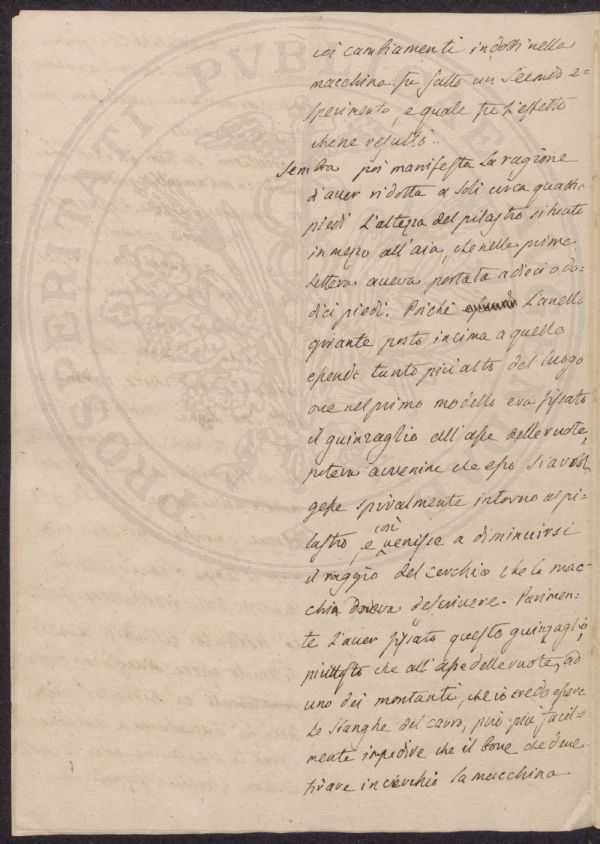 cui cambiamenti indotti nella
macchina fu fatto un secondo e=
sperimento, e quale fu l'effetto
che ne resultò.
Sembra poi manifesta la ragione
d'aver ridotta a soli circa quattro
piedi l'altezza del pilastro situato
in mezzo all'aia, che nella prima
lettera aveva portata a dieci o do=
dici piedi. Poichè l'anello
girante posto in cima a quello
essendo tanto più alto del luogo
ove nel primo modello era fissato
il guinzaglio all'asse delle ruote,
poteva avvenire che esso si avvol=
gesse spiralmente intorno al pi=
lastro, e così venisse a diminuirsi
il raggio del cerchio che la mac=
china doveva descrivere. Parimen=
te l'aver fissato questo guinzaglio,
piuttosto che all'asse delle ruote, ad
uno dei montanti, che io credo essere
le stanghe del carro, può più facil=
mente impedire che il bove che deve
tirare in cerchio la macchina
PROSPERITATI PVBLICAE